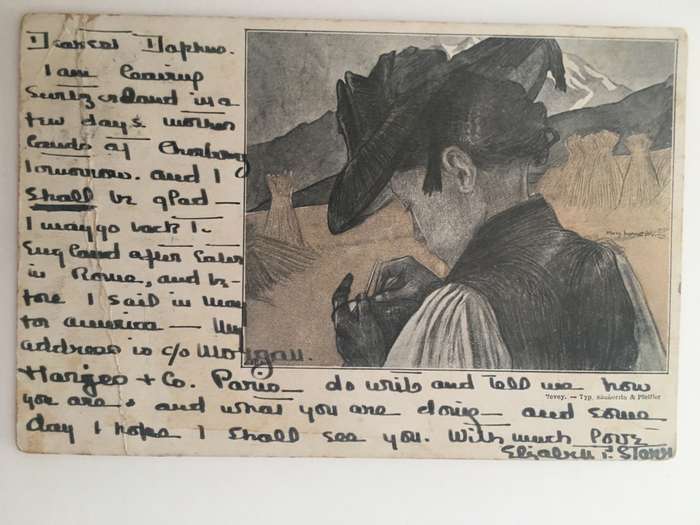 Dearest Daphne.
I am leaving
Switzerland in a
few days mother
lands at Cherbourg
tomorrow. and I
shall be glad —
I may go back to
England after Easter
in Rome, and be-
fore I sail in May
for America — My
address is c/o Morgan.
Harjes + Co. Paris — do write and tell me how
you are, and what you are doing — and some
day I hope I shall see you. With much love
Elizabeth P. Starr
Vevey. — Typ. Säuberlin & Pfeiffer